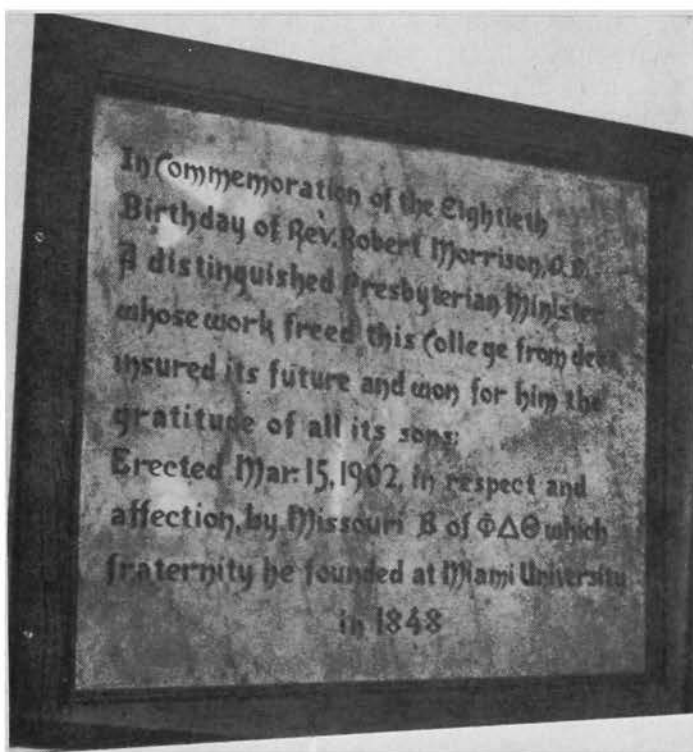 In Commemoration of the Eightieth
Birthday of Rev. Robert Morrison, D.D.
A distinguished Presbyterian Minister
whose work freed this College from debt
insured its future and won for him the
gratitude of all its sons:
Erected Mar. 15, 1902, in respect and
affection, by Missouri B of ΦΔΘ which
fraternity he founded at Miami University
in 1848